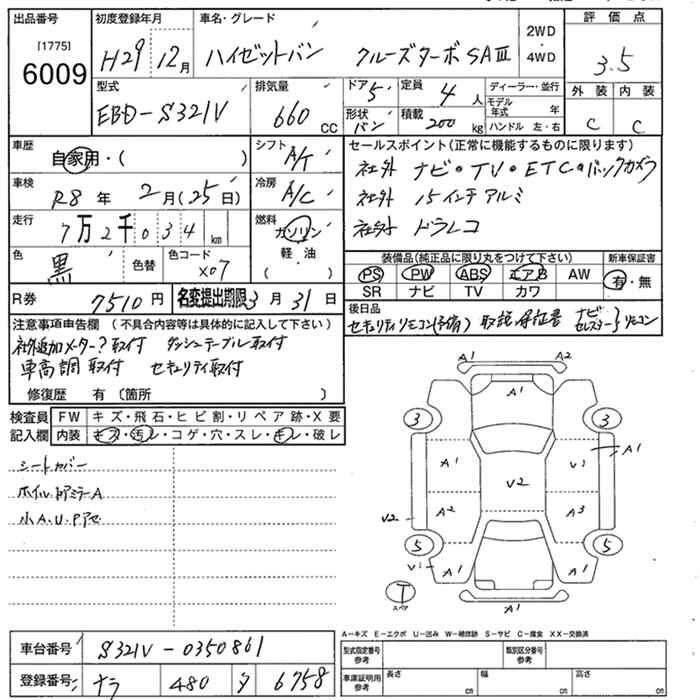 出品番号 初度登録年月 車名・グレード 2WD 評価点
[1775] H29 12月 ハイゼットバン クルーズターボSAⅢ ・4WD 3.5
6009
型式 排気量 ドア 定員 ディーラー・並行 外装 内装
EBD-S321V 660 cc 5 4 人 モデル年式 年 C C
形状 バン 積載 200 kg ハンドル 左・右
車歴 自家用・( ) シフト A/T セールスポイント(正常に機能するものに限ります)
社外 ナビ・TV・ETC・バックカメラ
車検 R8年 2月(25日) 冷房 A/C 社外 15インチアルミ
走行 7万2千034km 燃料 ガソリン 社外 ドラレコ
軽・油
( )
色 黒 色替 色コード X07 装備品(純正品に限り丸をつけて下さい) 新車保証書
PS PW ABS エアB AW 有・無
SR ナビ TV カワ
R券 7510円 名変提出期限3月31日 後日品
セキュリティリモコン(予備) 取説 保証書 ナビ セレスター}リモコン
注意事項申告欄(不具合内容等は具体的に記入して下さい)
社外追加メーター?取付 ダッシュテーブル取付
車高調取付 セキュリティ取付
修復歴 有(箇所 )
検査員 FW キズ・飛石・ヒビ割・リペア跡・X要
記入欄 内装 キズ・汚レ・コゲ・穴・スレ・キレ・破レ
シートカバー
ホイル、ドアミラーA
小A.U.Pアセ
A1 A2
A1
3 3
A1 V1 A1
V2
V2 A2 A3
5 5
V1 A1 A1
T
スペア
A1
A-キズ E-エクボ U-凹み W-補修跡 S-サビ C-腐食 XX-交換済
車台番号 S321V-0350861
型式指定番号 参考 類別区分番号 参考
登録番号 ナラ 480 タ 6758
車庫証明用 参考 長さ cm 幅 cm 高さ cm